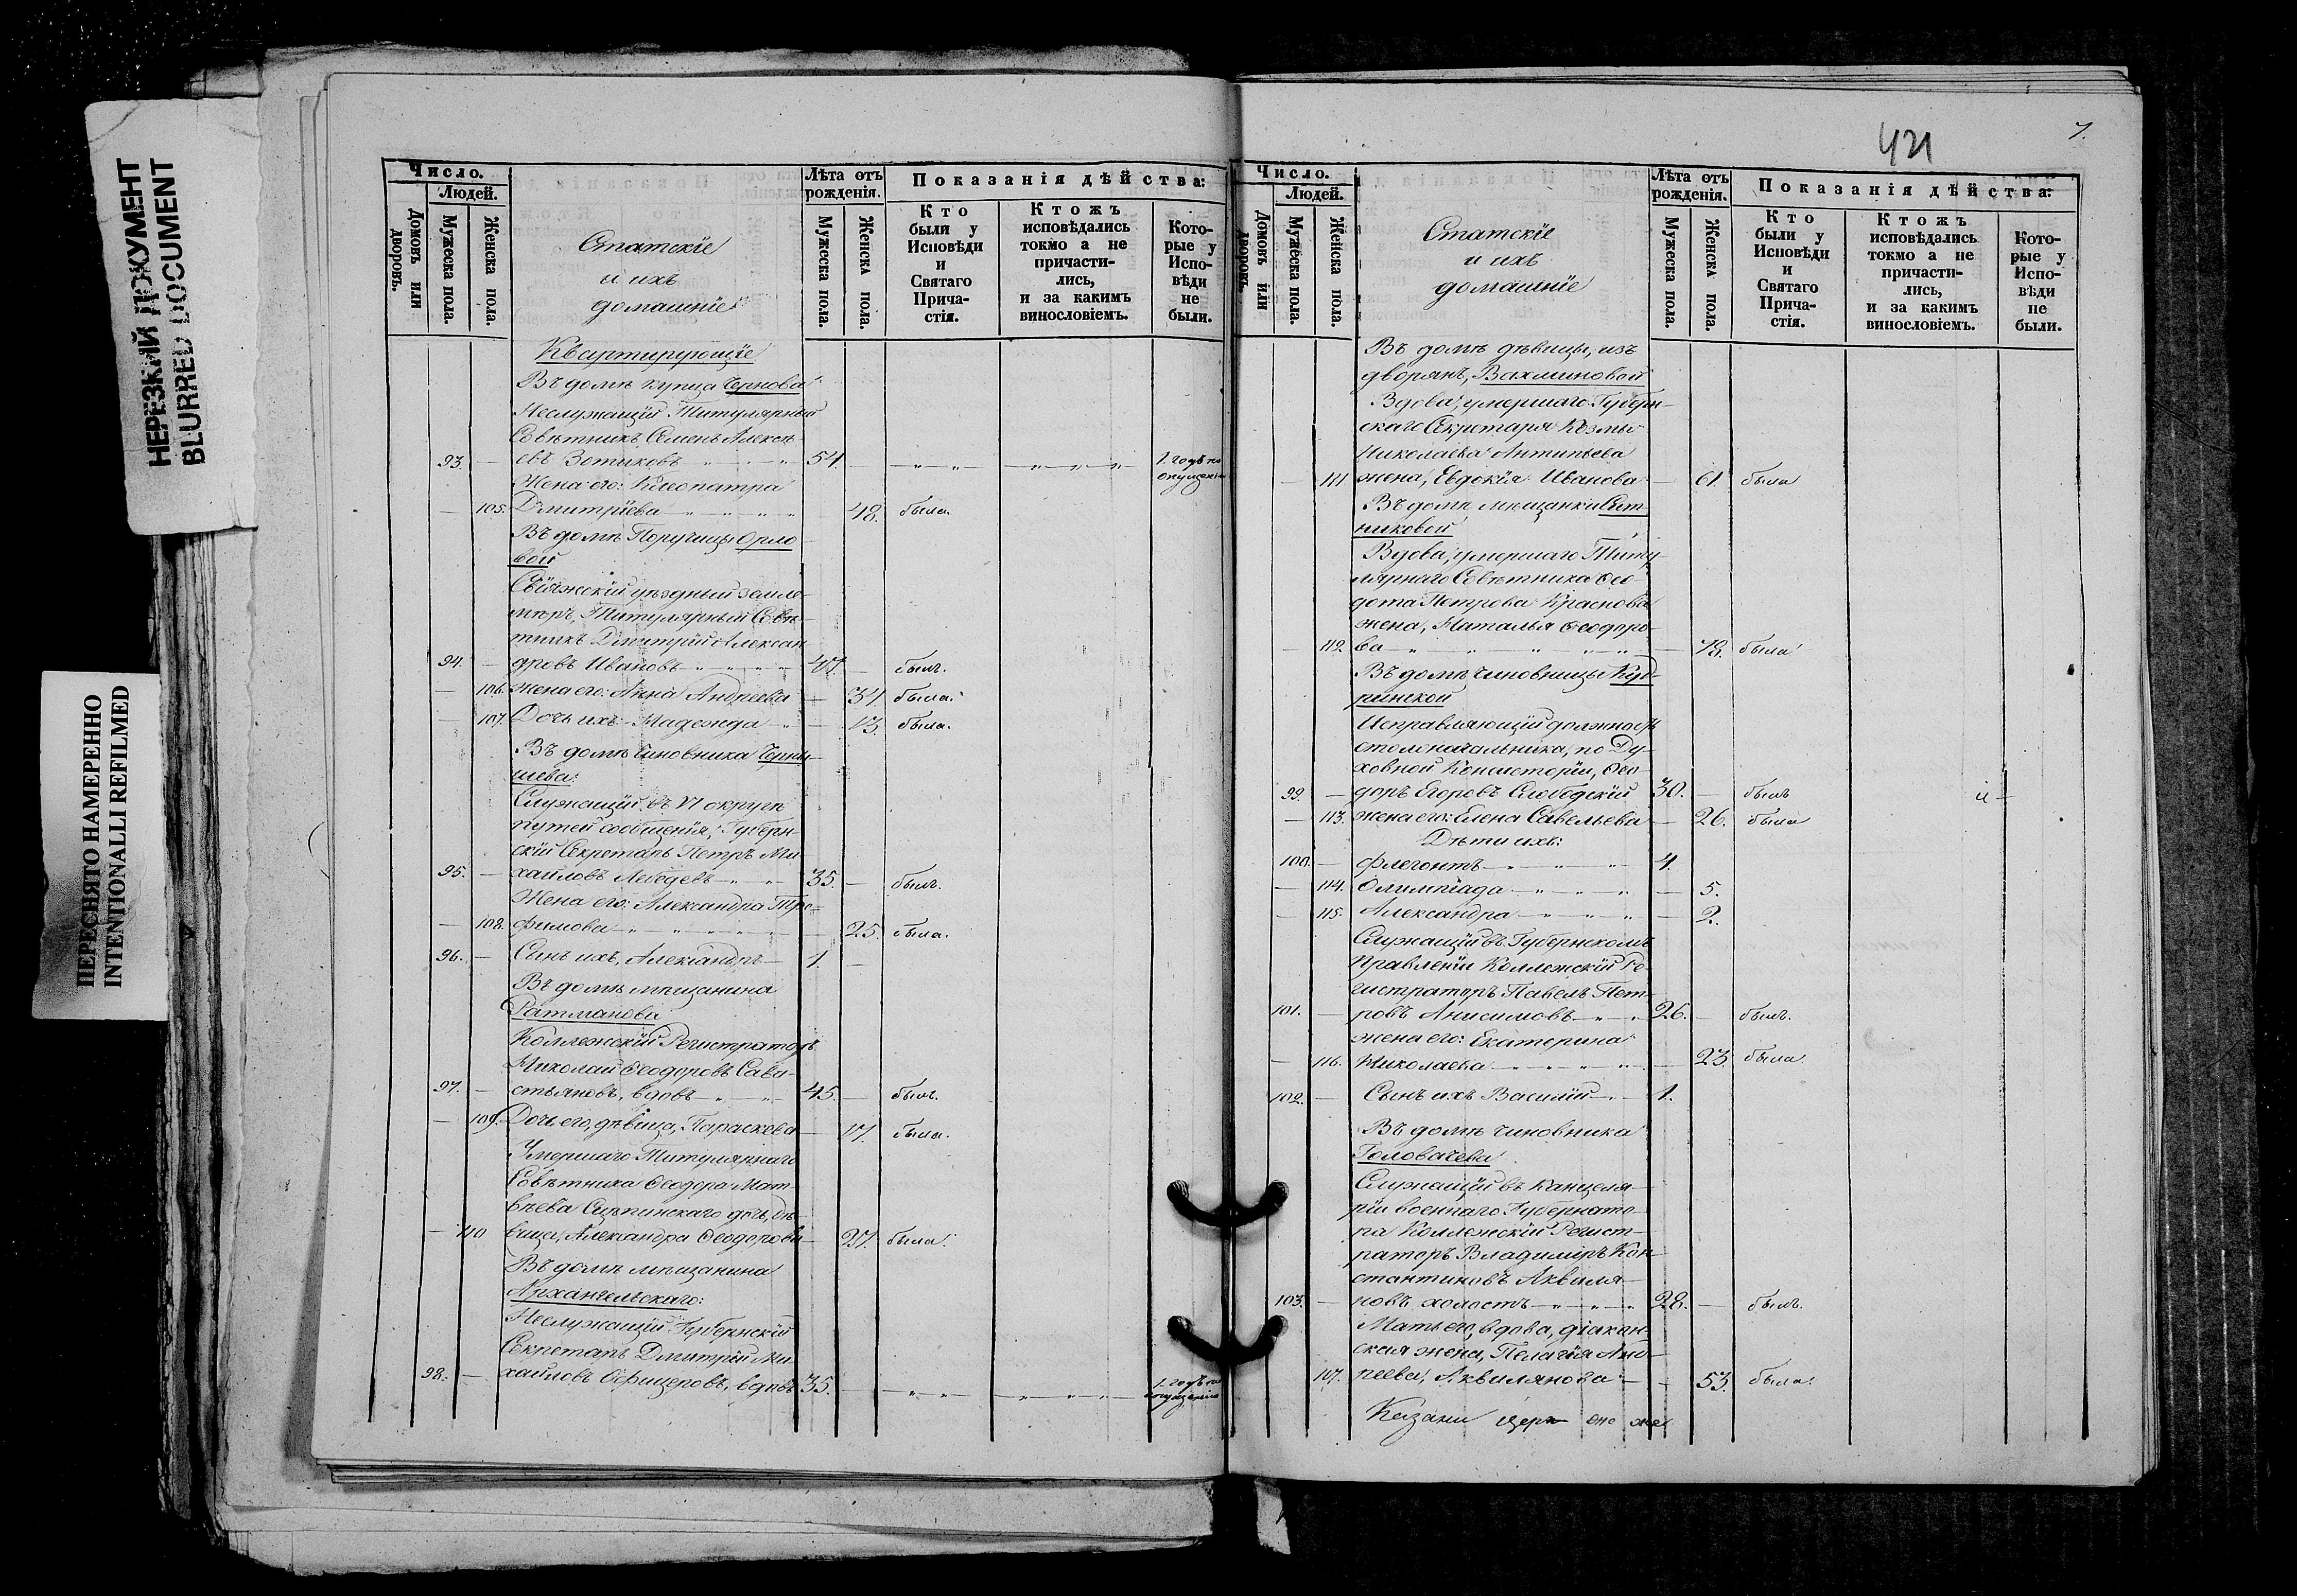 НЕРЕЗКИЙ ДОКУМЕНТ
BLURRED DOCUMENT
ПЕРЕСНЯТО НАМЕРЕННО
INTENTIONALLI REFILMED
Число.
Людей.
Домовъ или дворовъ.
Мужеска пола.
Женска пола.
Статскіе
и ихъ
домашніе
Лѣта отъ рожденія.
Мужеска пола.
Женска пола.
Показанія дѣйства:
Кто были у Исповѣди и Святаго Прича-стія.
Ктожъ исповѣдались токмо а не причасти-лись, и за какимъ винословіемъ.
Кото-рые у Испо-вѣди не были.
Квартирующіе
Въ домѣ купца Чернова
Неслужащій Титулярный
Совѣтникъ Семенъ Алексѣ-
93. — евъ Зотиковъ 54. — 1. годъ по опущенію
Жена его: Клеопатра
— 105. Дмитріева 48. была.
Въ домѣ Поручицы Орло-
вой
Свіяжскій уѣздный земле-
мѣръ, Титулярный Совѣ-
тникъ Дмитрій Алексан-
94. — дровъ Ивановъ 47. — былъ.
— 106. жена его: Анна Андреева — 34. была.
— 107. Дочь ихъ Надежда — 13. была.
Въ домѣ чиновника Черны-
шева:
Служащій въ VI округѣ
путей сообщенія, Губерн-
скій Секретарь Петръ Ми-
95. — хайловъ Лебедевъ 35. — былъ.
Жена его: Александра Тро-
— 108. фимова 25. была.
96. — Сынъ ихъ, Александръ 1. —
Въ домѣ мѣщанина
Ратманова
Коллежскій Регистраторъ
Николай Ѳеодоровъ Сава-
97. — стьяновъ, вдовъ 45. — былъ.
— 109. Дочь его, дѣвица, Параскева — 17. была.
Умершаго Титулярнаго
Совѣтника Ѳеодора Мат-
вѣева Сцепинскаго дочь, дѣ-
— 110 вица, Александра Ѳеодорова — 27. была.
Въ домѣ мѣщанина
Архангельскаго:
Неслужащій Губернскій
Секретарь Дмитрій Ми-
98. — хайловъ Офицеровъ, вдовъ 35. — 1. годъ по опущенію
421
7.
Число.
Людей.
Домовъ или дворовъ.
Мужеска пола.
Женска пола.
Статскіе
и ихъ
домашніе
Лѣта отъ рожденія.
Мужеска пола.
Женска пола.
Показанія дѣйства:
Кто были у Исповѣди и Святаго Прича-стія.
Ктожъ исповѣдались токмо а не причасти-лись, и за какимъ винословіемъ.
Кото-рые у Испо-вѣди не были.
Въ домѣ дѣвицы, изъ
дворянъ, Вахминовой
Вдова, умершаго Губерн-
скаго Секретаря Козмы
Николаева Антипьева
— 111 жена, Евдокія Иванова — 61. была
Въ домѣ мѣщанки Сит-
никовой
Вдова, умершаго Титу-
лярнаго Совѣтника Ѳео-
дота Петрова Краснова
жена, Наталья Ѳеодоро-
— 112. ва — 48. была
Въ домѣ чиновницы Куд-
ринской
Исправляющій должность
столоначальника, по Ду-
ховной Консисторіи, Ѳео-
99. — доръ Егоровъ Слободскій 30. — былъ
— 113. жена его: Елена Савельева — 26. была
Дѣти ихъ:
100. — Флегонтъ 4.
— 114. Олимпіада — 5.
— 115. Александра — 2.
Служащій въ Губернскомъ
Правленіи Коллежскій Ре-
гистраторъ Павелъ Пет-
101. — ровъ Анисимовъ 26. — былъ.
жена его: Екатерина
— 116. Николаева — 23. была
102. — Сынъ ихъ Василій 1.
Въ домѣ чиновника
Головачева
Служащій въ Канцеля-
ріи военнаго Губернато-
ра Коллежскій Регист-
раторъ Владимиръ Кон-
стантиновъ Аквиля-
103. — новъ холостъ 28. — былъ.
Мать его, вдова, діакон-
ская жена, Пелагія Анд-
117. реева, Аквилянова — 53. была.
Казани церк